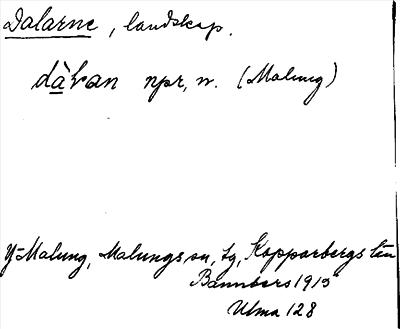 Dalarne, landskap.
dàḷan npr, n. (Malung)
Y-Malung, Malungs sn, tg, Kopparbergs län
Bannbers 1915
Ulma 128